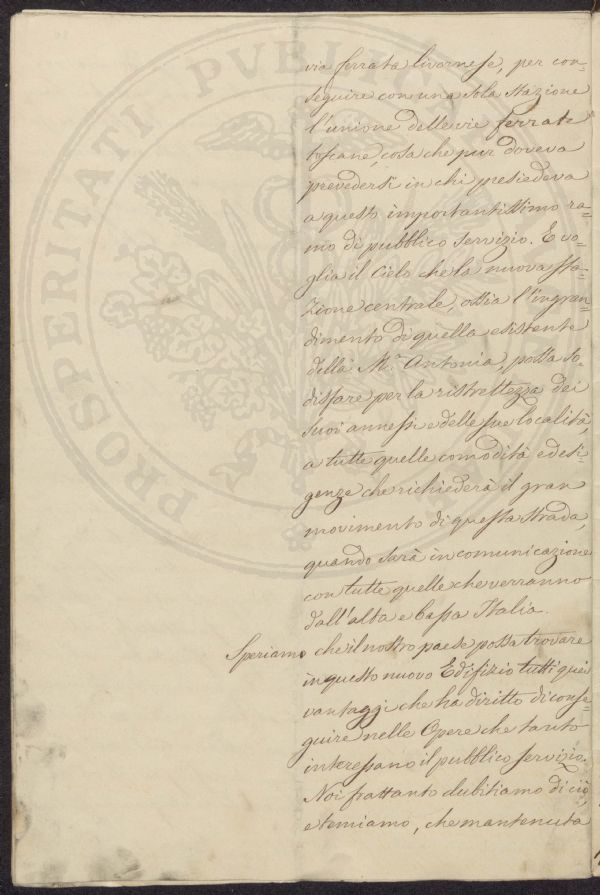 via ferrata livornese, per con=
seguire con una sola stazione
l'unione delle vie ferrate
toscane, cosa che pur doveva
prevedersi in chi presiedeva
a questo importantissimo ra=
mo di pubblico servizio. E vo=
glia il Cielo che la nuova sta=
zione centrale, ossia l'ingran=
dimento di quella esistente
della M.ª Antonia, possa so=
disfare per la ristrettezza dei
suoi annessi e delle sue località,
a tutte quelle comodità ed esi=
genze che richiederà il gran
movimento di questa strada,
quando sarà in comunicazione
con tutte quelle che verranno
dall'alta e bassa Italia.
Speriamo che il nostro paese possa trovare
in questo nuovo Edifizio tutti quei
vantaggi che ha diritto di conse=
guire nelle Opere che tanto
interessano il pubblico servizio.
Noi frattanto dubitiamo di ciò,
e temiamo, che mantenuta
PROSPERITATI PVBLIC